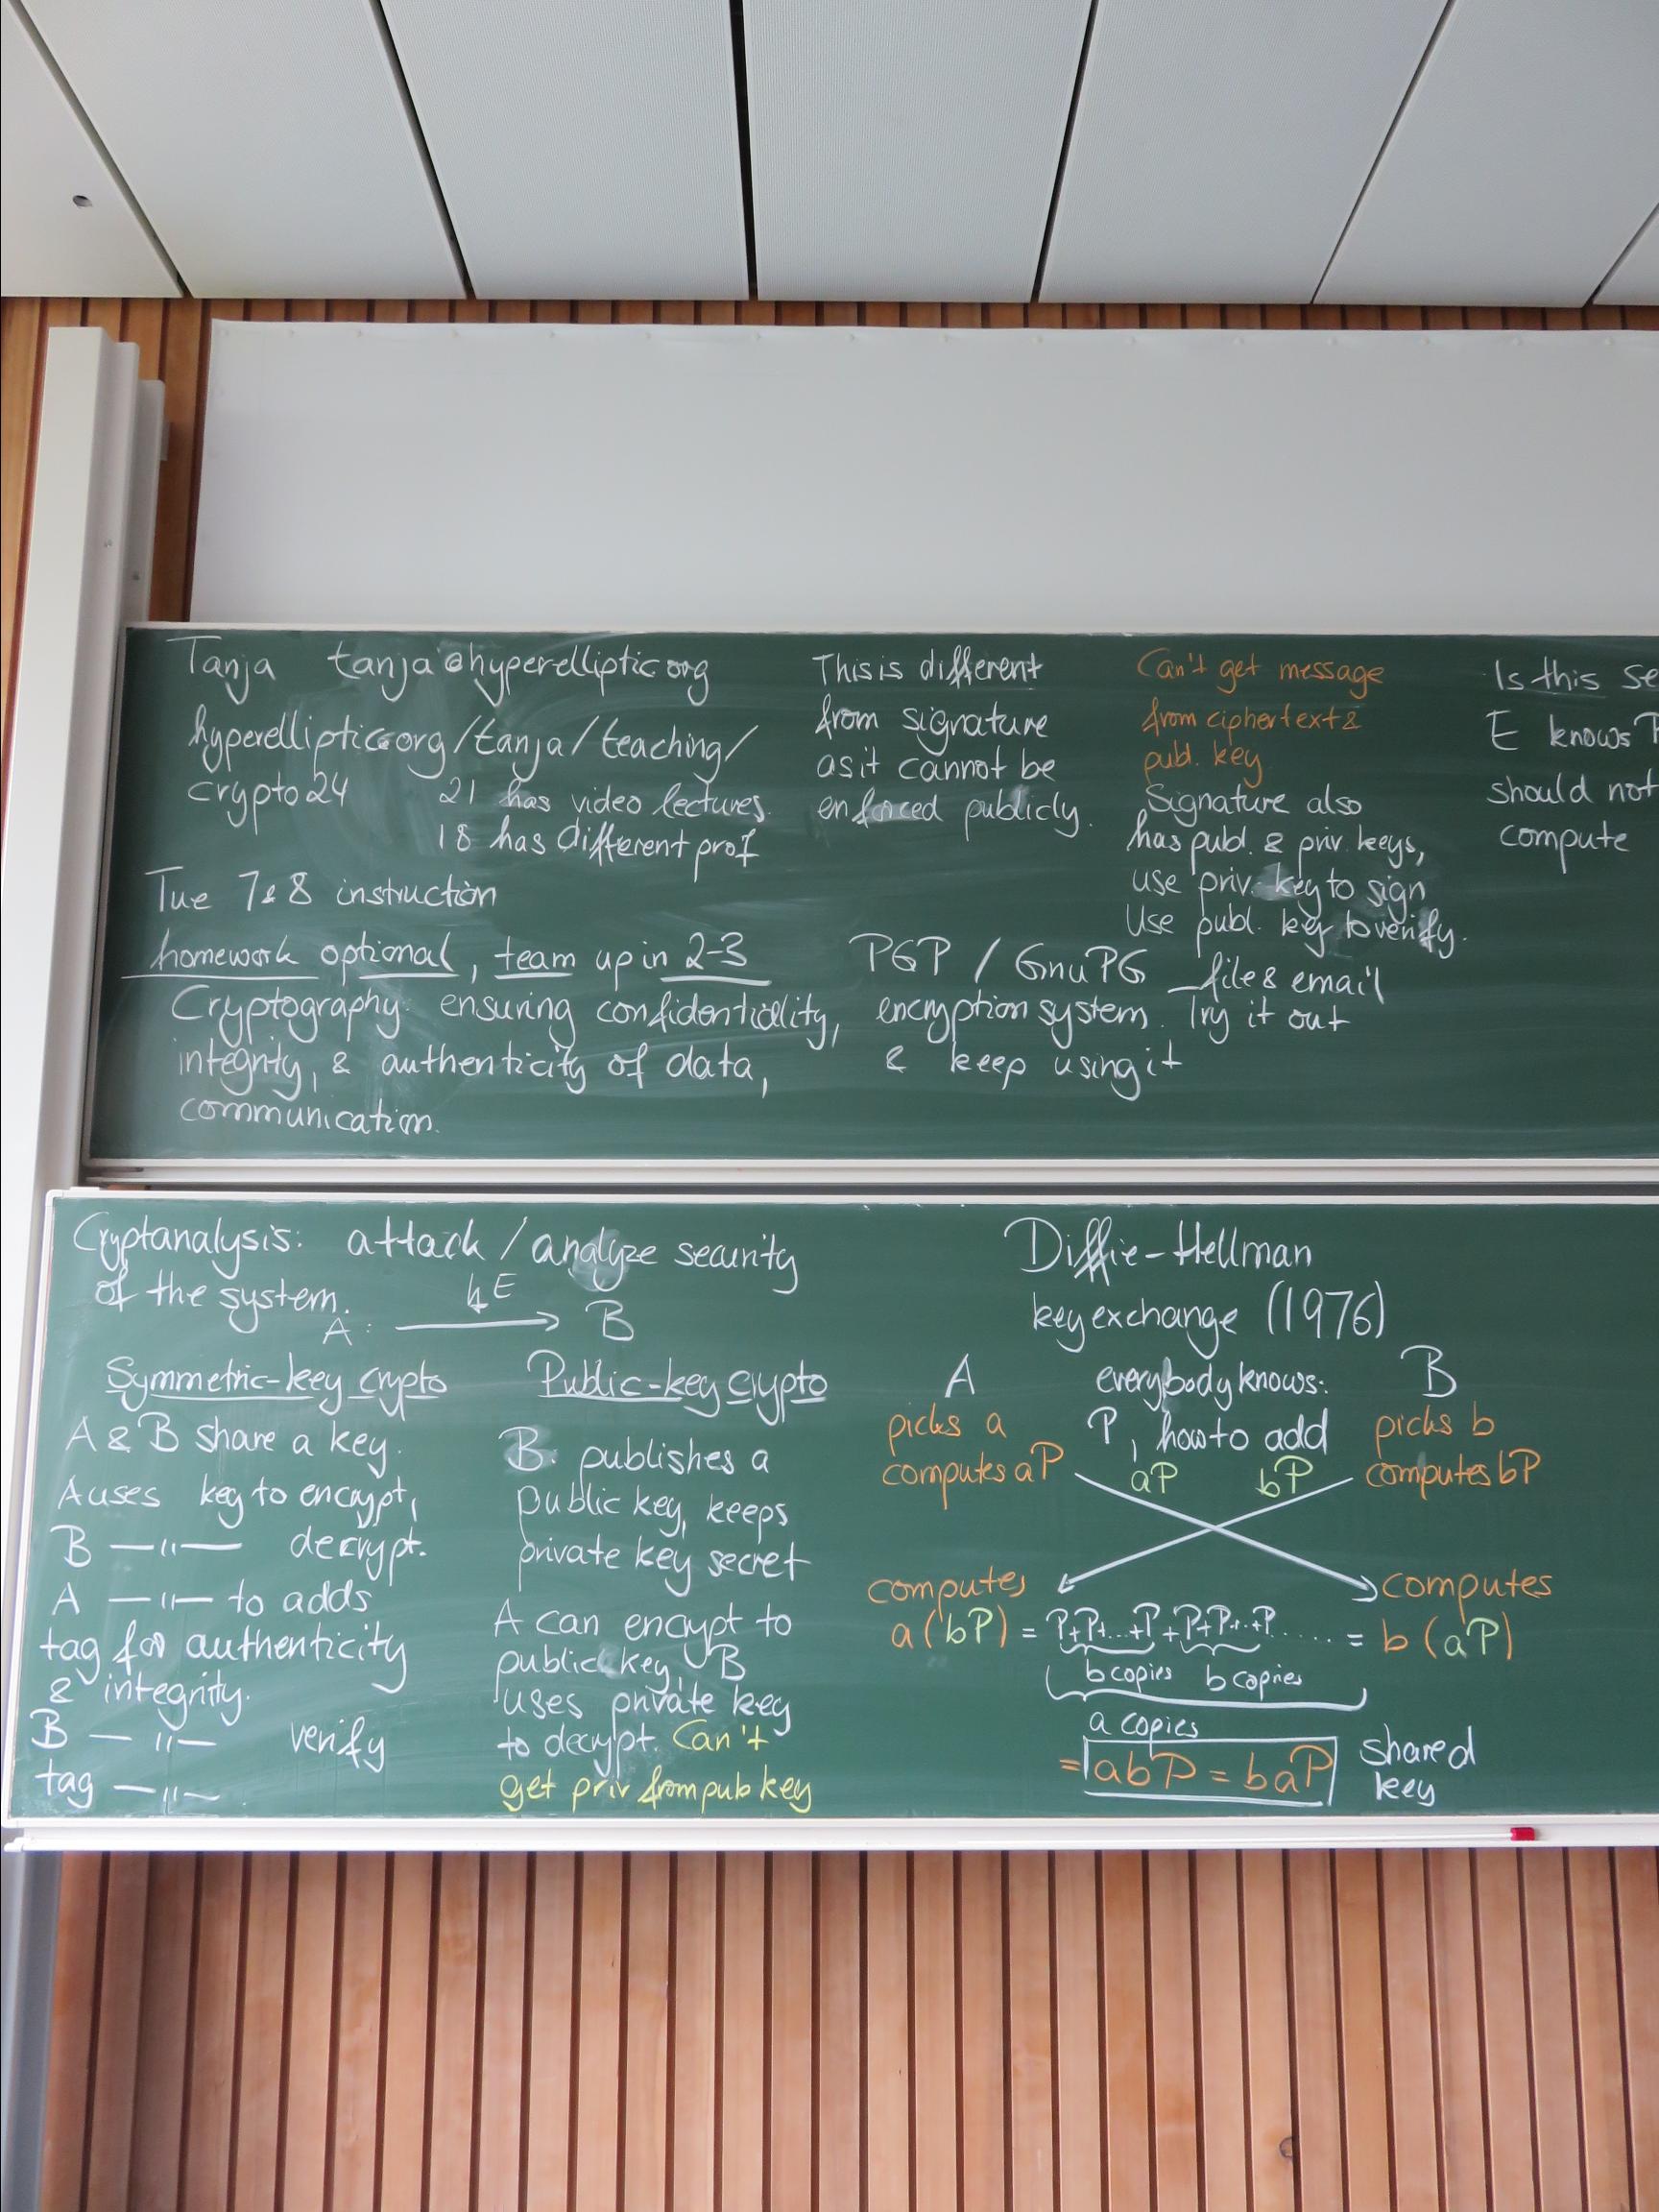 Tanja tanja@hyperelliptic.org
hyperelliptic.org/tanja/teaching/
crypto24 21 has video lectures.
18 has different prof
Tue 7&8 instruction
homework optional, team up in 2-3
Cryptography: ensuring confidentiality,
integrity, & authenticity of data,
communication.
This is different
from signature
as it cannot be
enforced publicly.
Can't get message
from ciphertext &
pub. key
Signature also
has publ. & priv. keys,
use priv. key to sign
Use publ. key to verify.
PGP / GnuPG – file & email
encryption system. Try it out
& keep using it
Is this se
E knows P
should not
compute
Cryptanalysis: attack / analyze security
of the system.
E
A: B
Symmetric-key crypto
A & B share a key.
A uses key to encrypt,
B —〃— decrypt.
A —〃— to adds
tag for authenticity
& integrity.
B —〃— verify
tag —〃—
Public-key crypto
B: publishes a
public key, keeps
private key secret
A can encrypt to
public key, B
uses private key
to decrypt. Can't
get priv from pub key
Diffie-Hellman
key exchange (1976)
A everybody knows: B
picks a P, how to add picks b
computes aP aP bP computes bP
computes computes
a(bP) = P+P+...+P+P+P+..+P...... = b(aP)
b copies b copies
a copies
= abP = baP shared
key